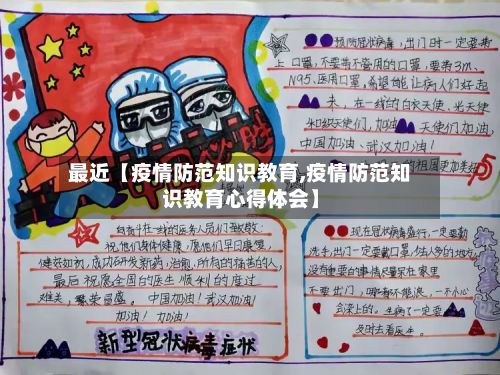 预防冠状病毒,出门时一定要带
上口罩,不要带不管用的口罩,要带3m、
N95.医用口罩,希望能让病人们好起
来,在一线的白衣天使,光天使
加油 天使加油
中国加油、武汉加油!
的祖国更加美好
最近【疫情防范知识教育,疫情防范知
识教育心得体会】
向奋斗在一线的医务人员们致敬:
祝他们身体健康,愿他们早日康复,
健花如初,成功研发新药,治愈,所有的病毒的人,
最后祝愿全国的医生顺利的度过
难关,繁荣昌盛。中国加油!武汉加油!
加油!加油!
新型冠状病毒症状
现在冠状病毒盛行,一定要勤
洗手,出门一定要戴口罩,住人多的地方,
没有重要的事情尽量呆在家里
不要出门,
会染上的。生病了一定要
及时去看医生。